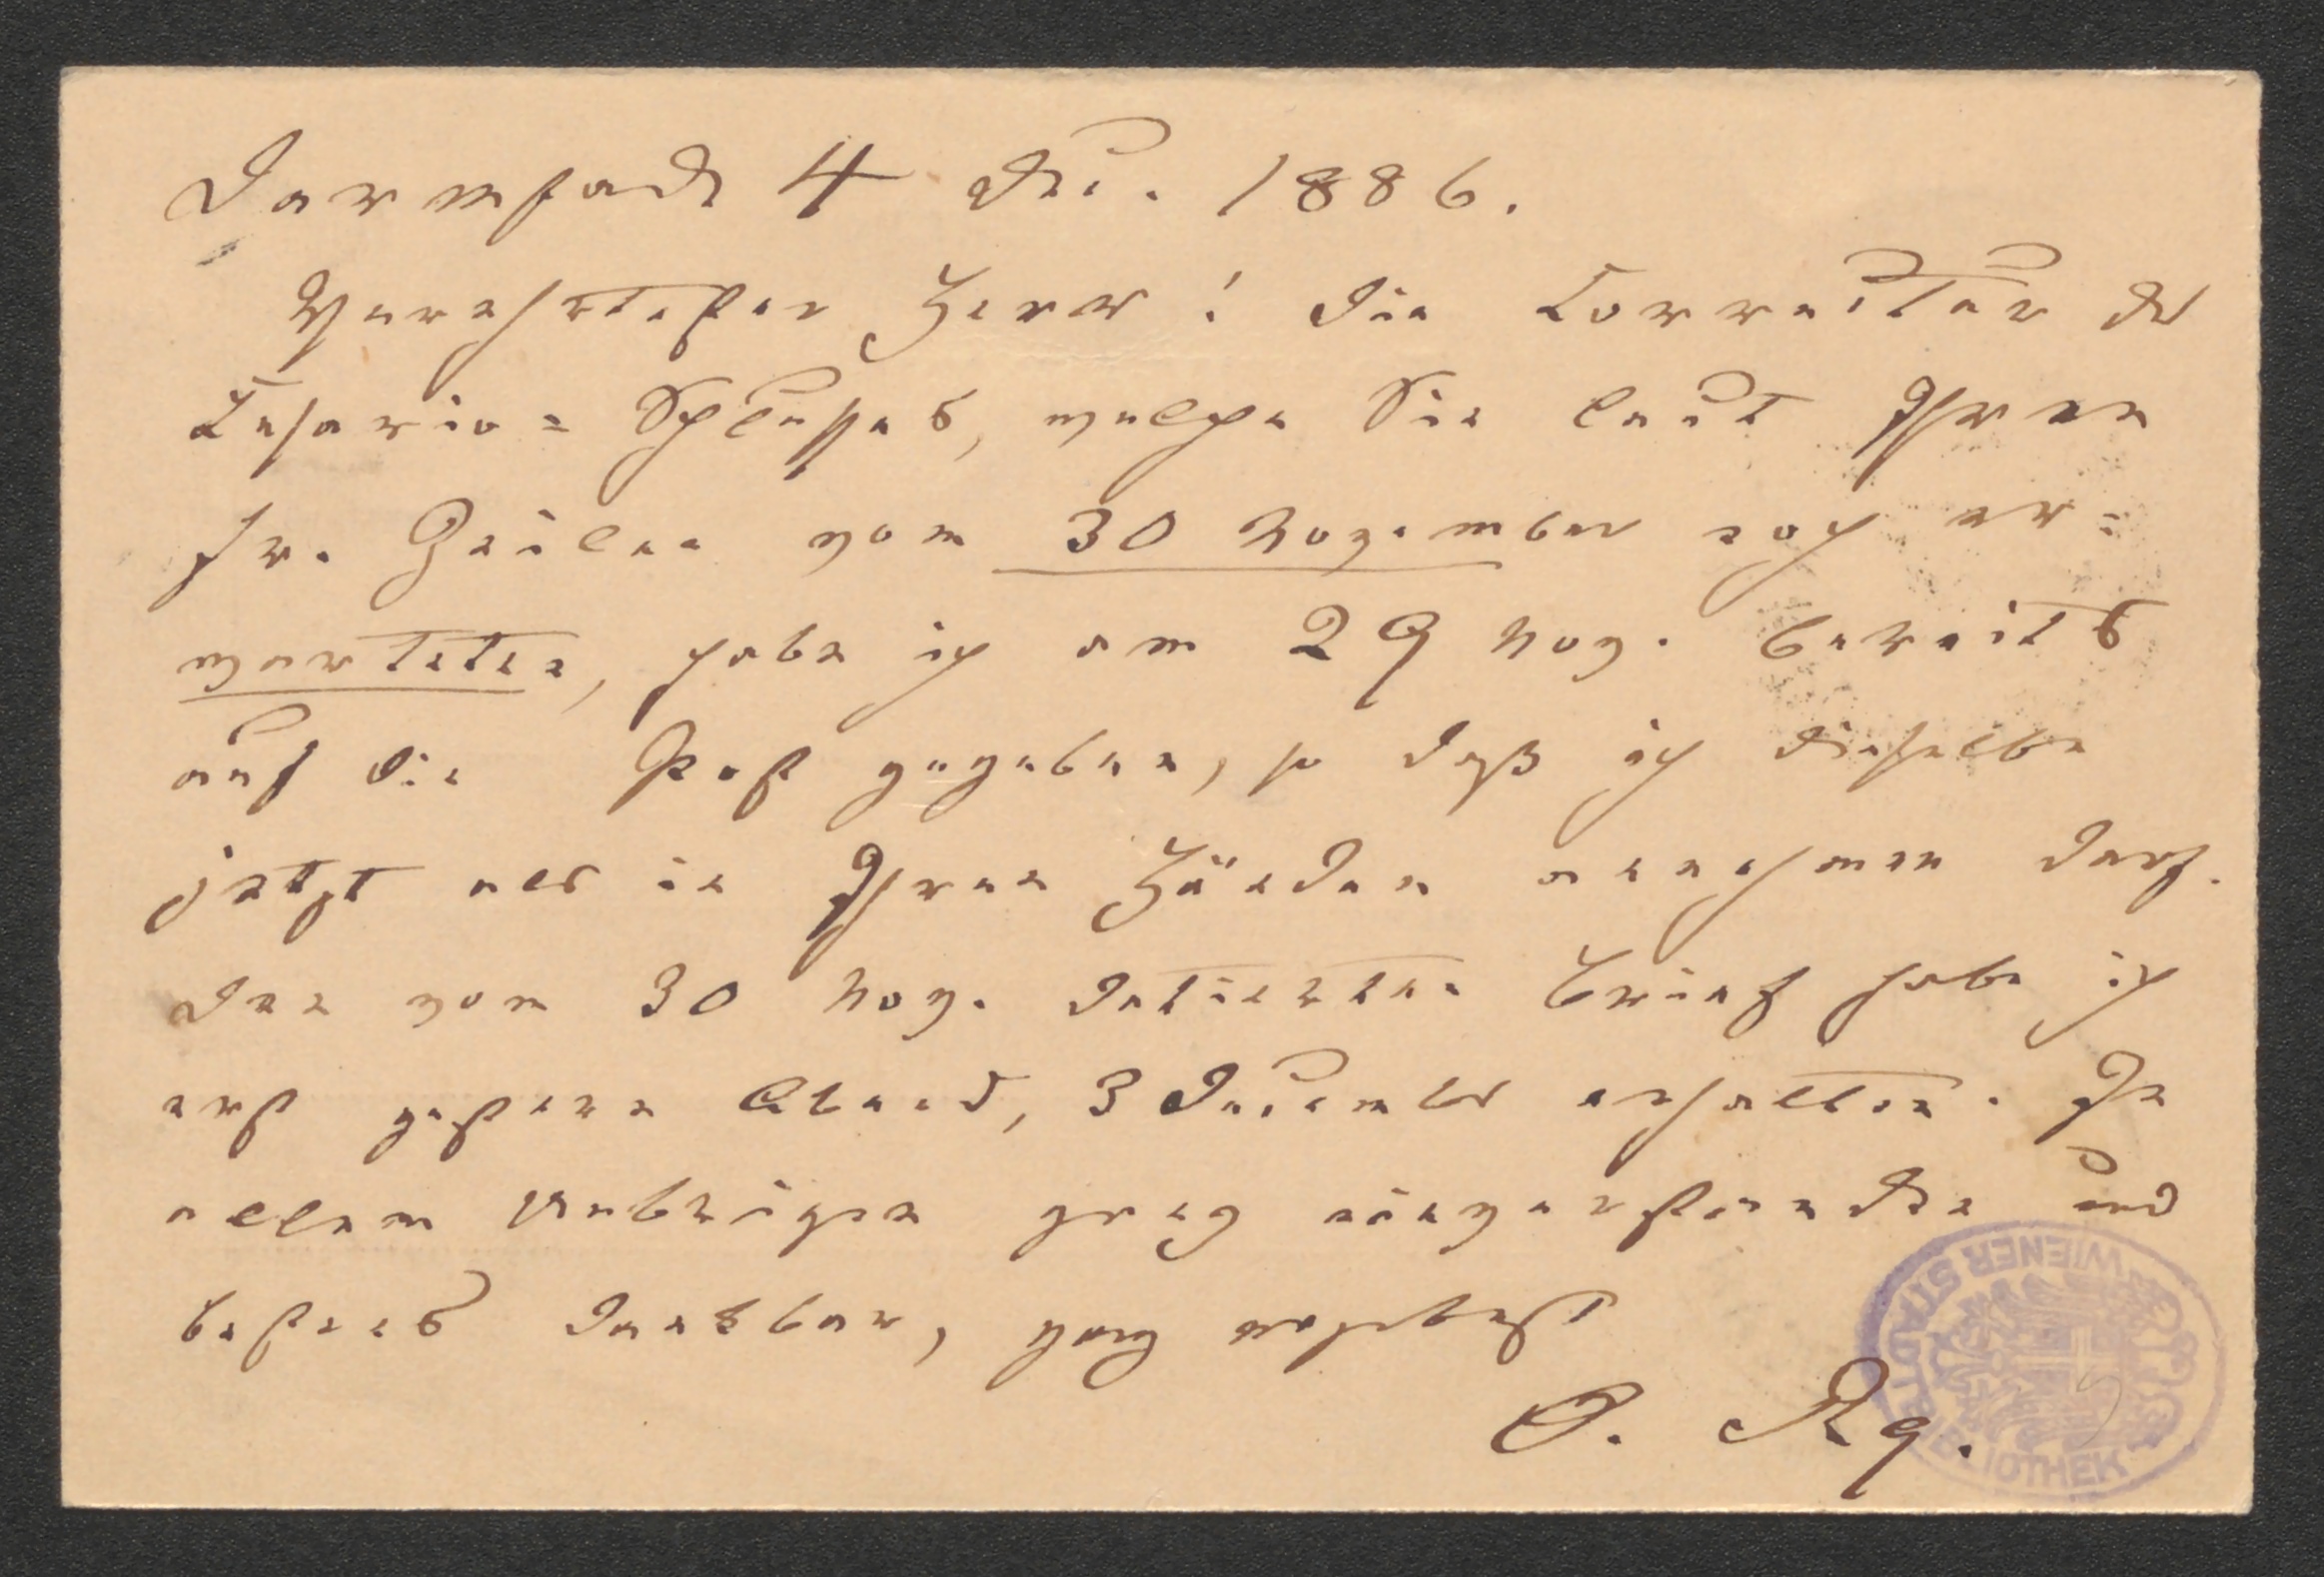 Darmstadt 4 Dec. 1886.
Verehrtester Herr! Die Correctur des
Cesario= Schlusses, welche Sie laut Ihren
fr. Zeilen vom 30 November noch er=
warteten, habe ich am 29 Nov. bereits
auf die Post gegeben, so daß ich dieselbe
jetzt als in Ihren Händen annehmen darf.
Den vom 30 Nov. datierten Brief habe ich
erst gestern Abend, 3 December erhalten. In
allem Uebrigen ganz einverstanden und
bestens dankbar, ganz ergebenst
O. Rq.
WIENER STADTBIBLIOTHEK